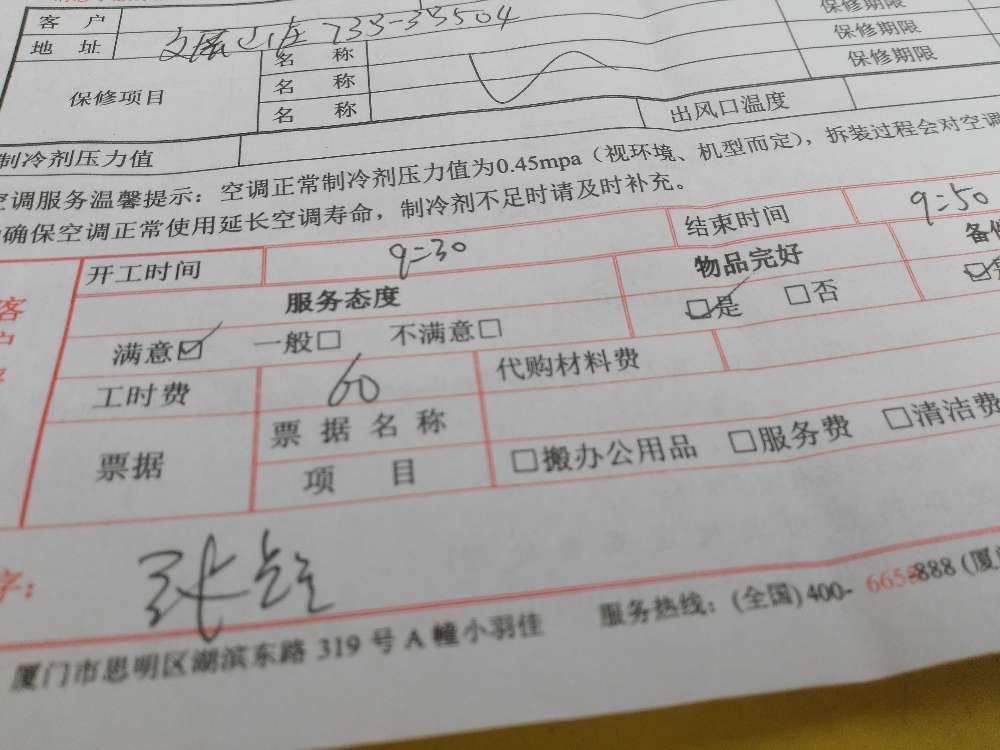 客 户
地 址 733-33504
保修项目 名 称 保修期限
名 称 保修期限
名 称 保修期限
制冷剂压力值 出风口温度
空调服务温馨提示：空调正常制冷剂压力值为0.45mpa（视环境、机型而定），拆装过程会对空调
确保空调正常使用延长空调寿命，制冷剂不足时请及时补充。
开工时间 9:30 结束时间 9:50
服务态度 物品完好
满意☑ 一般□ 不满意□ ☑是 □否
工时费 60 代购材料费
票据 票 据 名 称
项 目 □搬办公用品 □服务费 □清洁费
字：
厦门市思明区湖滨东路 319 号 A 幢小羽佳 服务热线：(全国) 400- 665-888 (厦